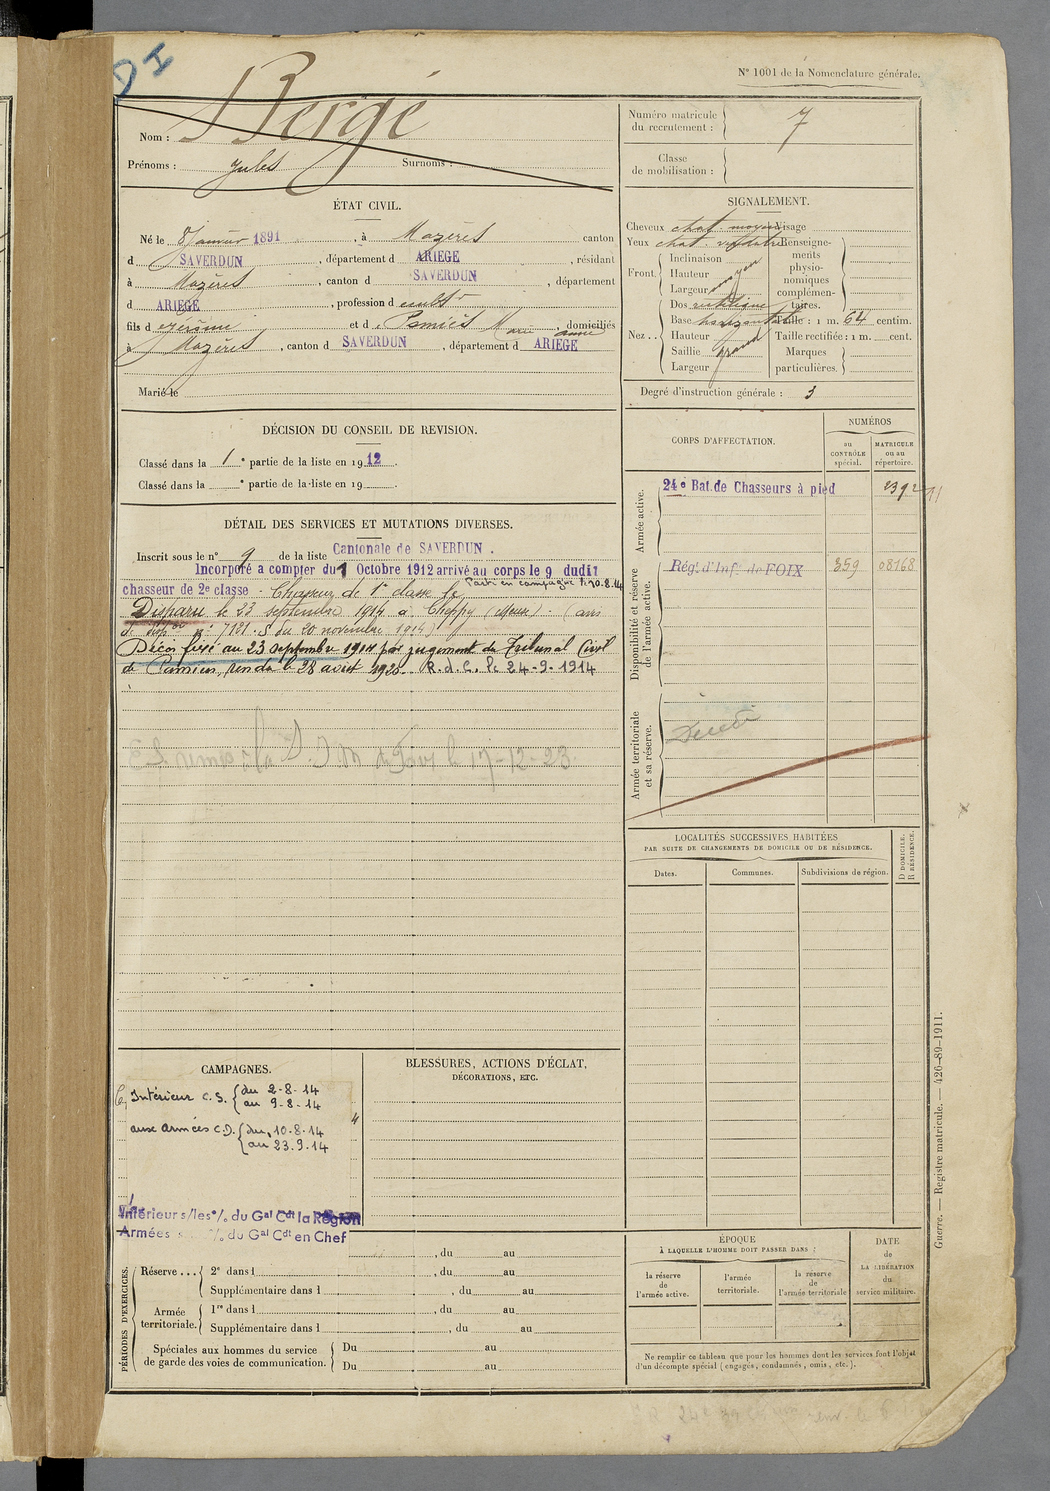 DI
N° 1001 de la Nomenclature générale.
Nom : Bergé
Prénoms : Jules Surnoms :
Numéro matricule du recrutement : 7
Classe de mobilisation :
ÉTAT CIVIL.
Né le 8 Janvier 1891, à Mazères canton
d SAVERDUN, département d ARIEGE, résidant
à Mazères, canton d SAVERDUN, département
d ARIEGE, profession de cultr
fils d et de Pamiès Marie Anne, domiciliés
à Mazères, canton d SAVERDUN, département d ARIEGE
Marié le
SIGNALEMENT.
Cheveux chat. moyen Visage
Yeux chat. Renseigne-
ments
physio-
nomiques
complémen-
taires.
Front. Inclinaison
Hauteur moyen
Largeur
Nez.. Dos rectiligne
Base horizontale Taille : 1 m. 64 centim.
Hauteur Taille rectifiée : 1 m. cent.
Saillie grand Marques
Largeur particulières.
Degré d'instruction générale : 3
DÉCISION DU CONSEIL DE REVISION.
Classé dans la 1e partie de la liste en 1912.
Classé dans la e partie de la liste en 19 .
DÉTAIL DES SERVICES ET MUTATIONS DIVERSES.
Inscrit sous le n° 9 de la liste Cantonale de SAVERDUN.
Incorporé a compter du 1 Octobre 1912 arrivé au corps le 9 dudit
chasseur de 2e classe - Chasseur de 1re classe le Parti en campagne le 10.8.14
Disparu le 23 septembre 1914 à Cheppy (Meuse). (avis
n° 7121.S du 20 novembre 1914)
Décès fixé au 23 septembre 1914 par jugement du Tribunal Civil
de Pamiers, rendu le 28 août 1920. R.d.C. le 24-9-1914
le 17-12-23
CORPS D'AFFECTATION.
NUMÉROS
au CONTRÔLE spécial.
MATRICULE ou au répertoire.
Armée active.
24e Bat. de Chasseurs à pied
Disponibilité et réserve de l'armée active.
Régt d'Infie de FOIX 359 08168
Armée territoriale et sa réserve.
Décédé
LOCALITÉS SUCCESSIVES HABITÉES
PAR SUITE DE CHANGEMENTS DE DOMICILE OU DE RÉSIDENCE.
Dates. Communes. Subdivisions de région. D DOMICILE. R RÉSIDENCE.
CAMPAGNES.
Intérieur C.S. { du 2-8-14
au 9-8-14
aux Armées C.D. { du 10-8-14
au 23.9.14
Intérieur s/les % du Gal Cdt la Région
Armées % du Gal Cdt en Chef
BLESSURES, ACTIONS D'ÉCLAT,
DÉCORATIONS, ETC.
PÉRIODES D'EXERCICES.
, du au
Réserve ... { 2e dans l , du au
Supplémentaire dans l , du au
Armée territoriale. { 1re dans l , du au
Supplémentaire dans l , du au
Spéciales aux hommes du service
de garde des voies de communication. { Du au
Du au
ÉPOQUE
À LAQUELLE L'HOMME DOIT PASSER DANS :
la réserve de l'armée active.
l'armée territoriale.
la réserve de l'armée territoriale
DATE de LA LIBÉRATION du service militaire.
Ne remplir ce tableau que pour les hommes dont les services font l'objet
d'un décompte spécial (engagés, condamnés, omis, etc.).
Guerre. — Registre matricule. — 426-89-1911.